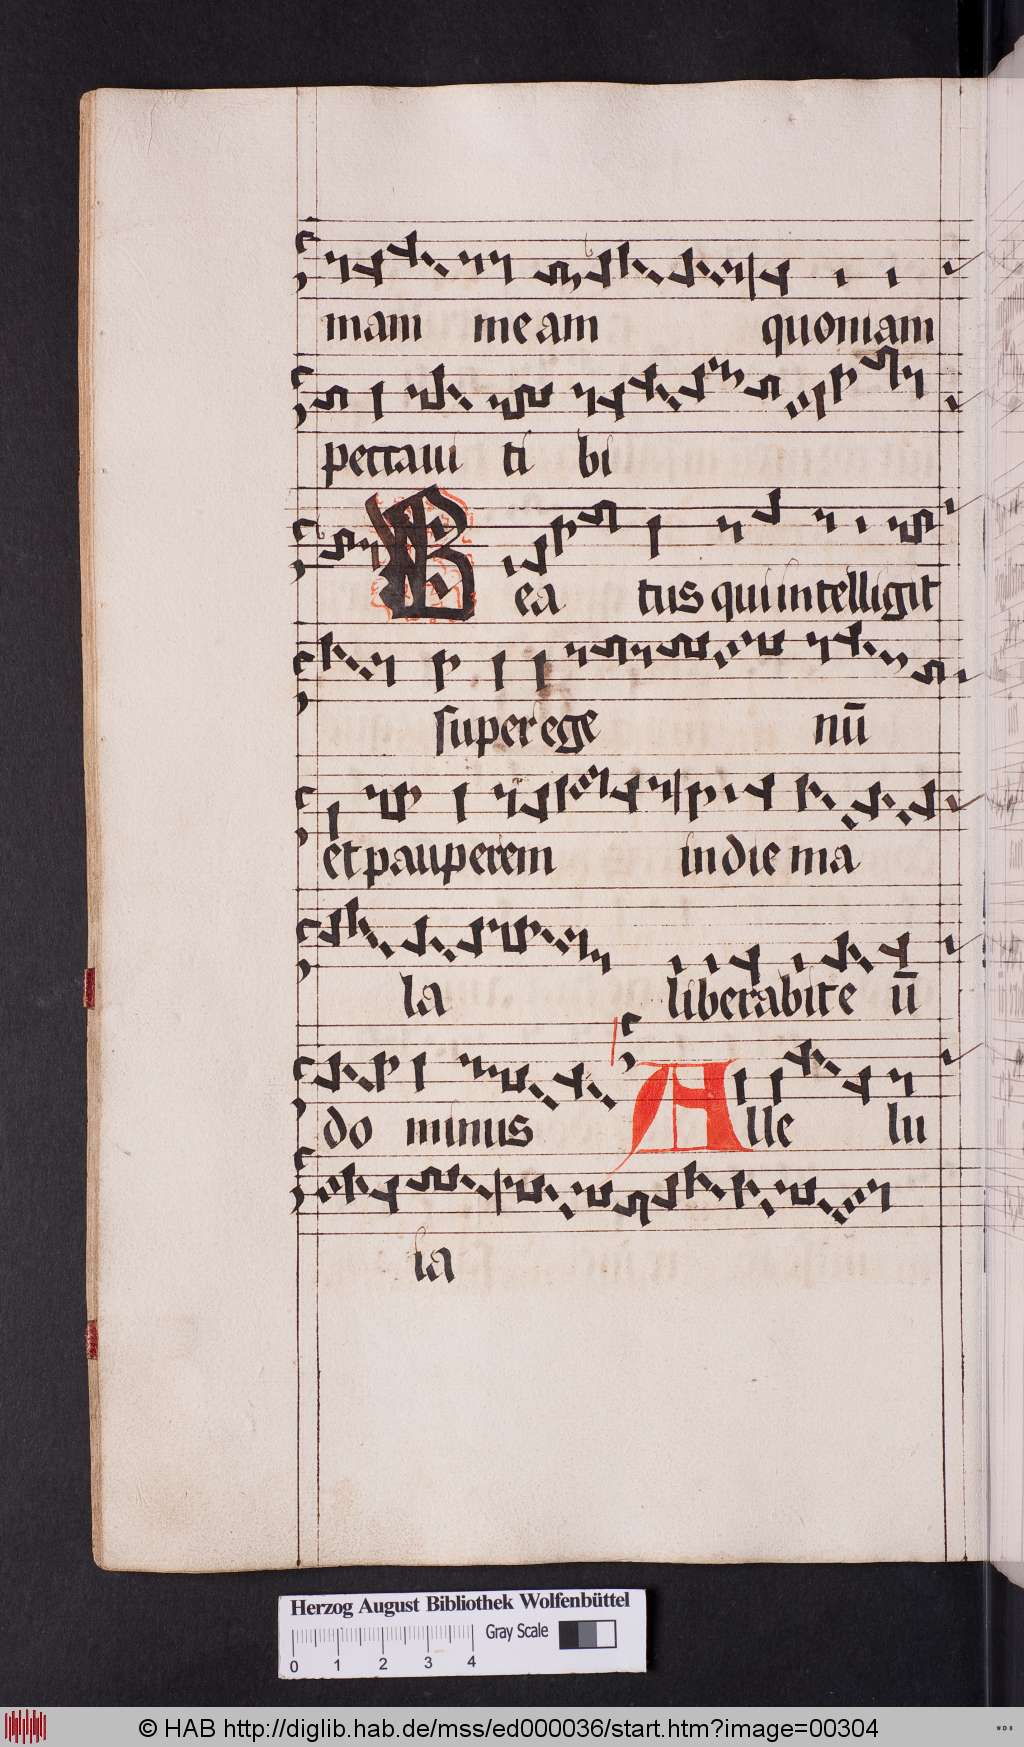 mam meam quoniam
pectaui ti bi
Bea tus qui intelligit
super ege nū
et pauperem in die ma
la liberabit e ū
do minus Alle lu
ia
Herzog August Bibliothek Wolfenbüttel
Gray Scale
0 1 2 3 4
© HAB http://diglib.hab.de/mss/ed000036/start.htm?image=00304